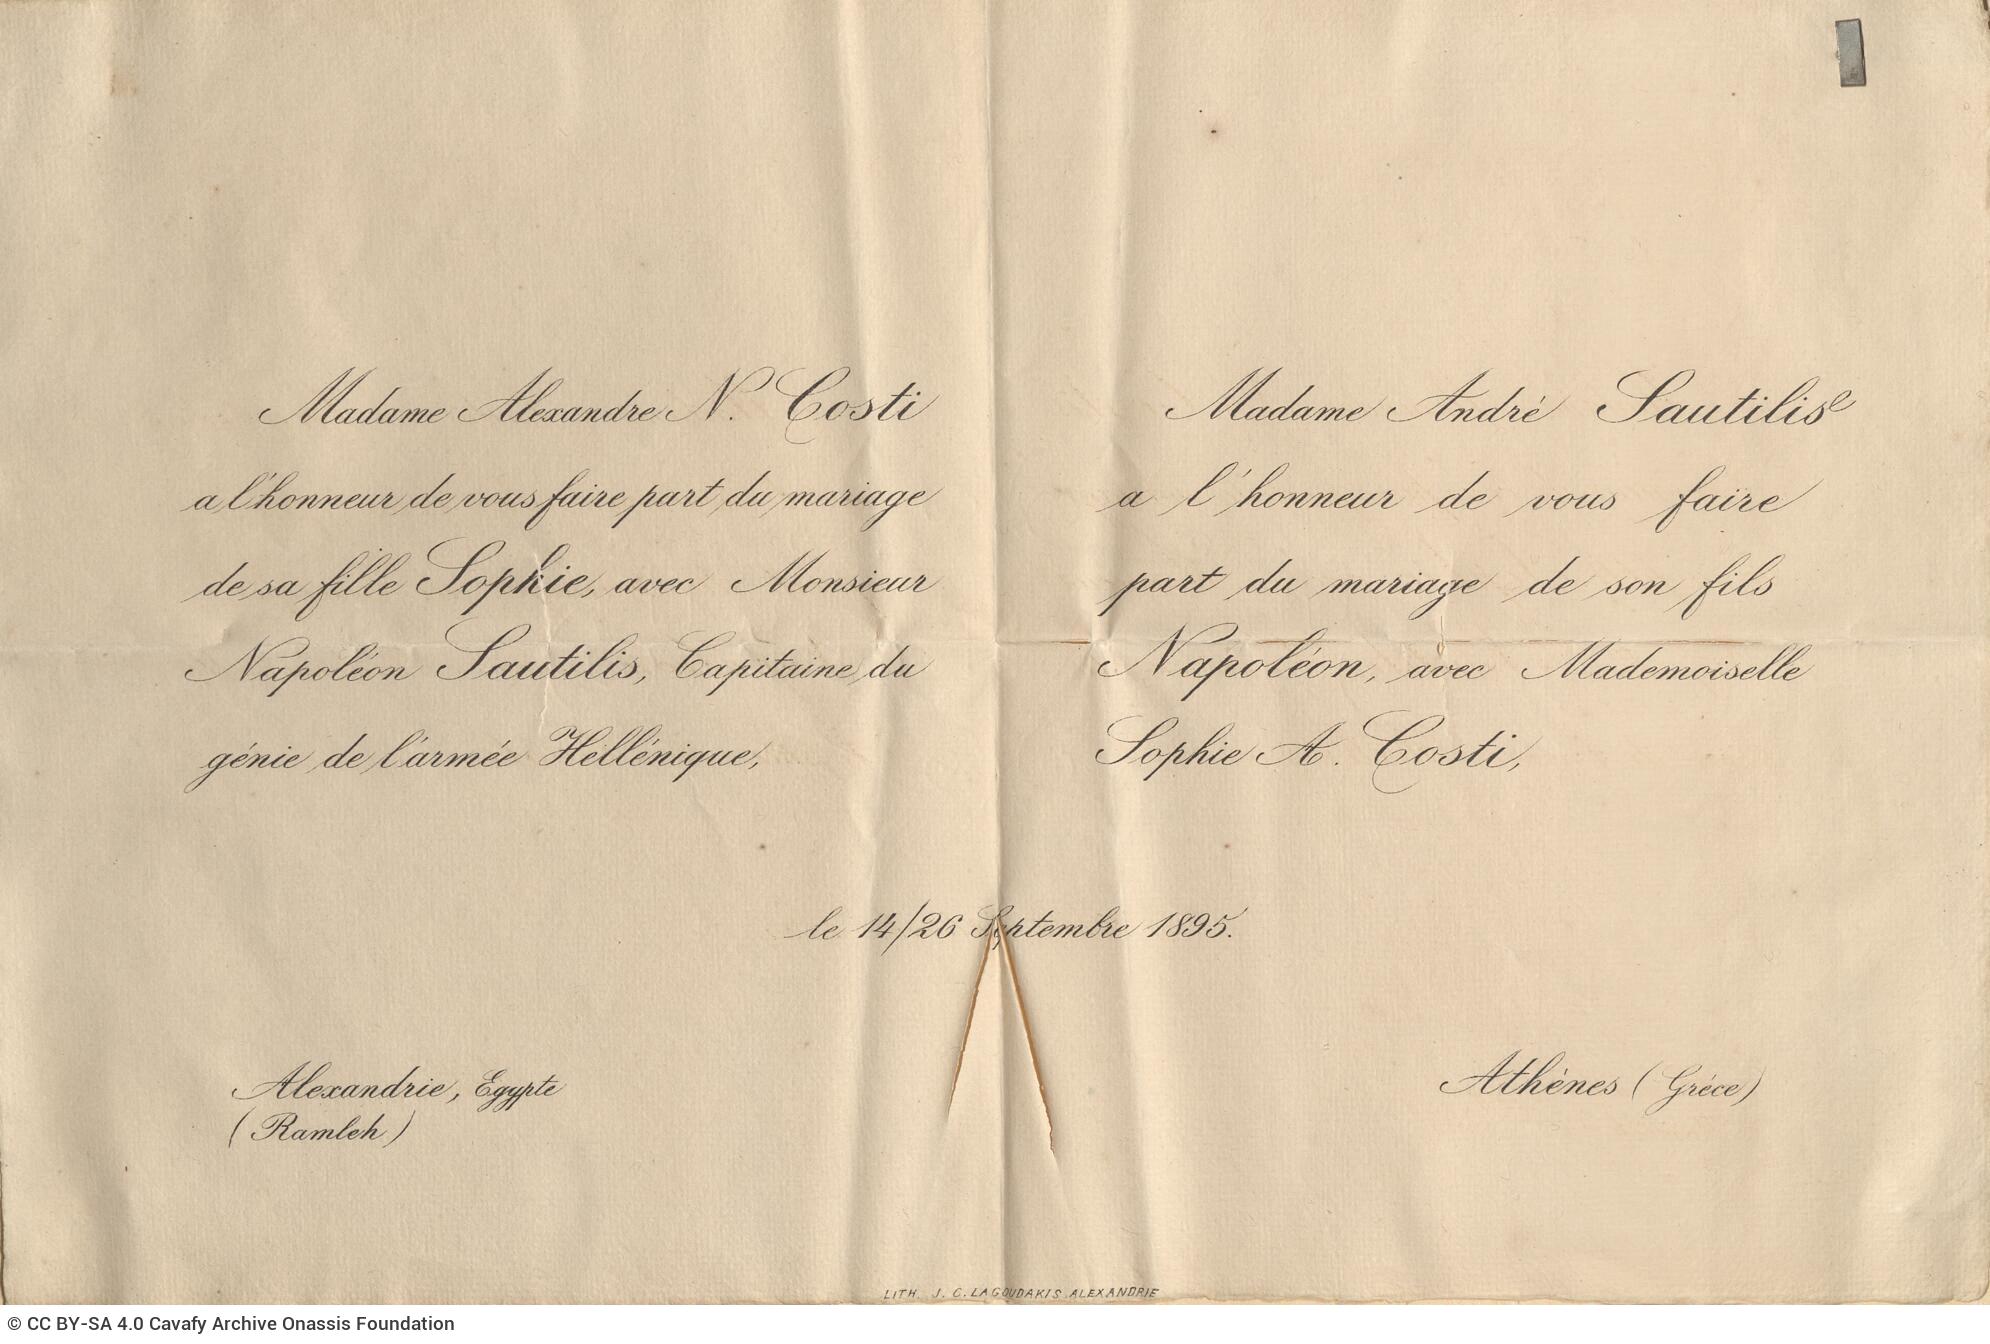 Madame Alexandre N. Costi
a l'honneur de vous faire part du mariage
de sa fille Sophie, avec Monsieur
Napoléon Sautilis, Capitaine du
génie de l'armée Hellénique,
Madame André Sautilis
a l'honneur de vous faire
part du mariage de son fils
Napoléon, avec Mademoiselle
Sophie A. Costi,
le 14/26 Septembre 1895.
Alexandrie, Egypte
(Ramleh)
Athènes (Gréce)
LITH. J. C. LAGOUDAKIS ALEXANDRIE
© CC BY-SA 4.0 Cavafy Archive Onassis Foundation